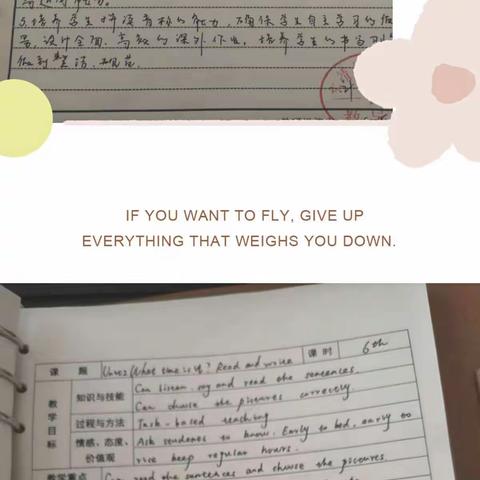 5.培养学生
设计全面、高效的课外作业,培养学生的书写
做到整洁、规范.
IF YOU WANT TO FLY, GIVE UP
EVERYTHING THAT WEIGHS YOU DOWN.
课 题 Unit2 What time is it? Read and write 课 时 6th
教学目标
知识与技能 Can listen, say and read the sentences.
Can choose the pictures correctly.
过程与方法 Task-based teaching
情感、态度、价值观 Ask students to know: Early to bed, early to
rise keep regular hours.
教学重点 Can read the sentences and choose the pictures